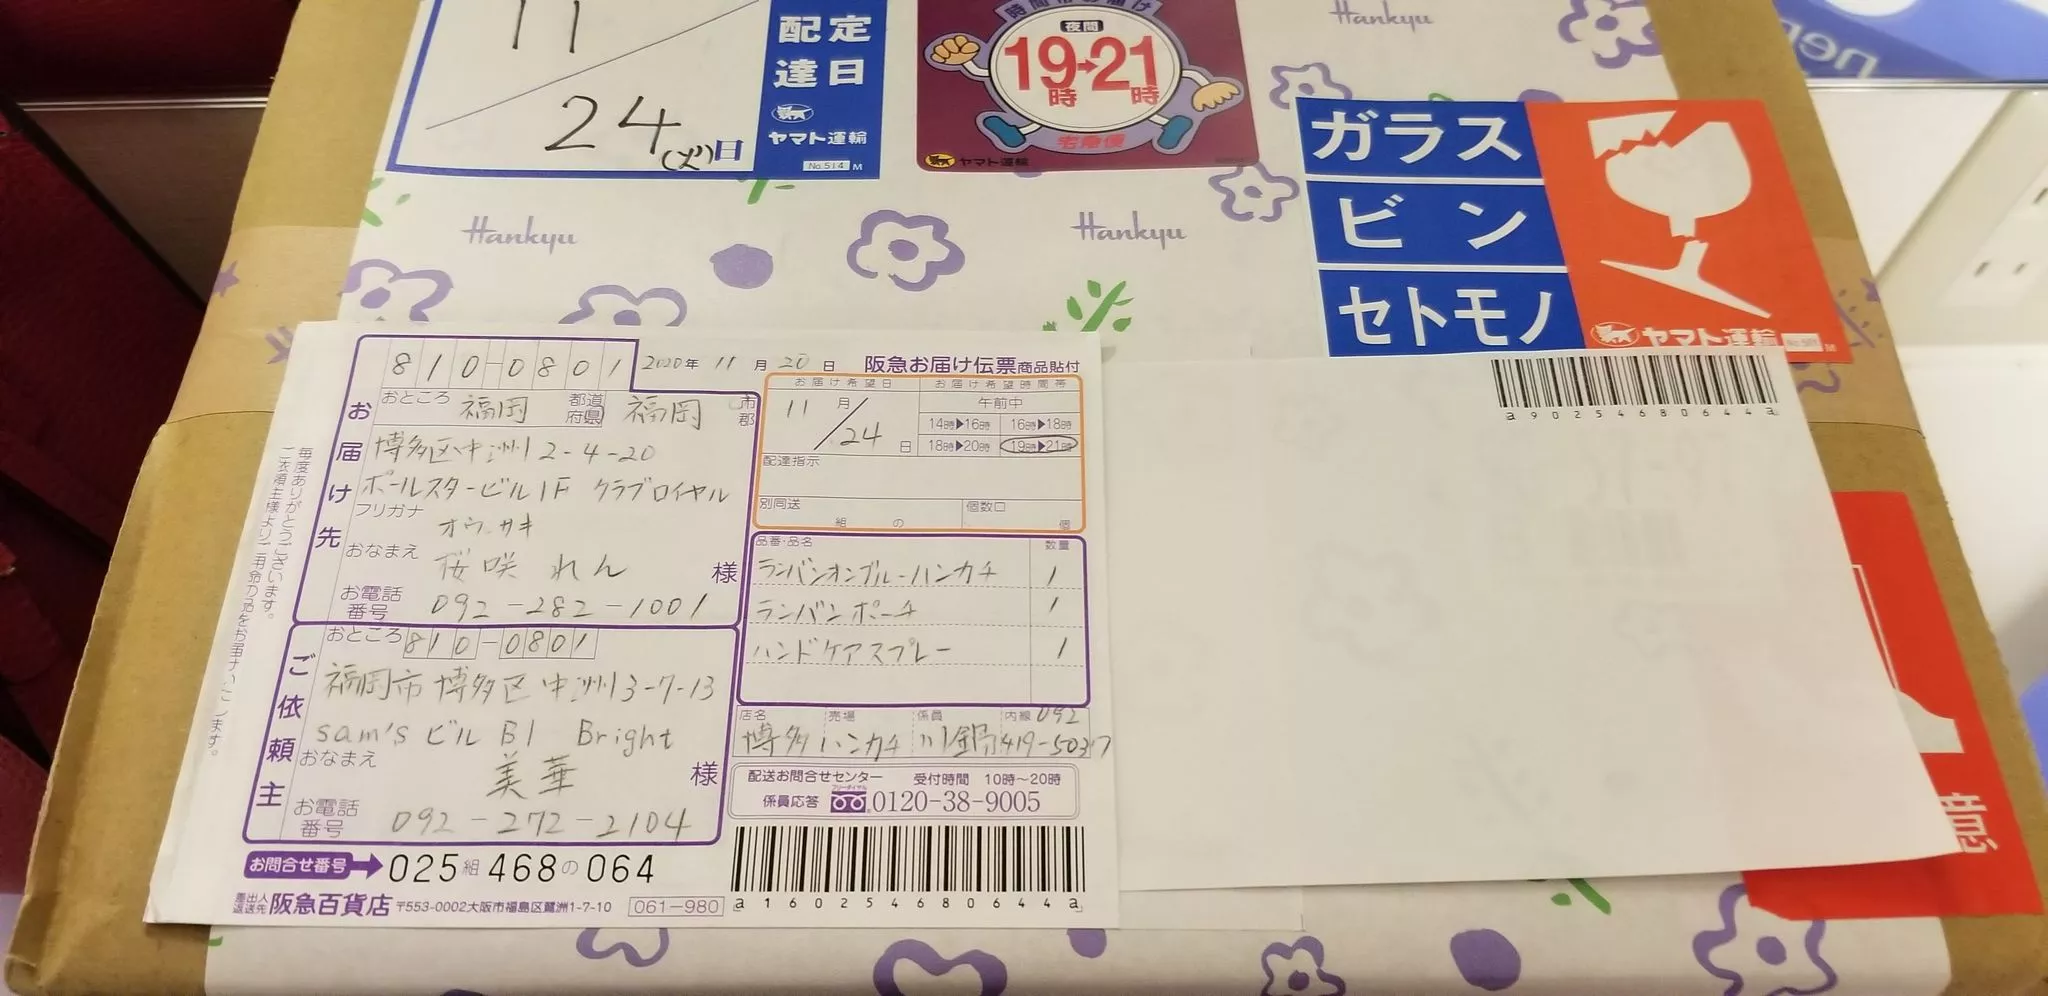 11
24(火)日
配定
達日
ヤマト運輸
No.514 M
夜間
19時→21時
宅急便
ヤマト運輸
Hankyu
ガラス
ビン
セトモノ
ヤマト運輸
Hankyu
Hankyu
810-0801
2020年 11月 20日
阪急お届け伝票 商品貼付
お届け先
おところ 福岡 都道府県 福岡 市郡
博多区中洲2-4-20
ポールスタービル1F クラブロイヤル
フリガナ オウサキ
おなまえ 桜咲 れん 様
お電話番号 092-282-1001
お届け希望日 お届け希望時間帯
11月/24日
午前中
14時▶16時 16時▶18時
18時▶20時 19時▶21時
配達指示
別同送 組の 個数口 個
品番・品名 数量
ランバンオンブルーハンカチ 1
ランバン ポーチ 1
ハンドケアスプレー 1
ご依頼主
おところ 810-0801
福岡市博多区中洲3-7-13
sam'sビル B1 Bright
おなまえ 美華 様
お電話番号 092-272-2104
店名 売場 係員 内線 092
博多 ハンカチ 川鍋 419-5037
配送お問合せセンター 受付時間 10時～20時
係員応答 フリーダイヤル 0120-38-9005
お問合せ番号 025組468の064
差出人返送先 阪急百貨店 〒553-0002大阪市福島区鷺洲1-7-10 061-980
a160254680644a
a902546806 4a
毎度ありがとうございます。
意